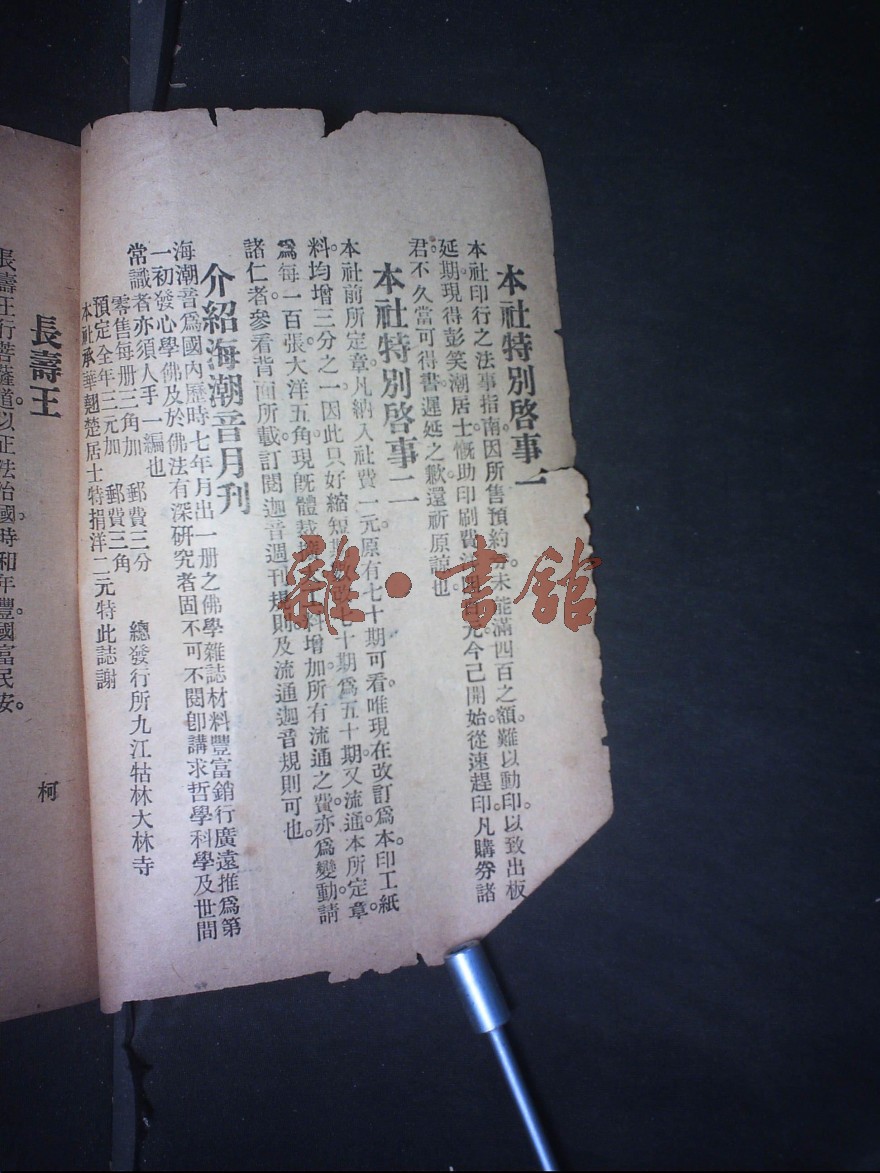 本社特別啓事一
本社印行之法事指南。因所售預約券未能滿四百之額。難以動印。以致出板
延期。現得彭笑潮居士慨助印刷費洋四百元。今己開始從速趕印。凡購券諸
君。不久當可得書。遲延之歉。還祈原諒也。
本社特別啓事二
本社前所定章。凡納入社費一元。原有七十期可看。唯現在改訂爲本。印工紙
料。均增三分之一。因此只好縮短期數。改七十期爲五十期。又流通本所定章。
爲每一百張大洋五角。現旣體裁料增加。所有流通之費。亦爲變動。請
諸仁者參看背面所載訂閱迦音週刊規則。及流通迦音規則可也。
介紹海潮音月刊
海潮音爲國內歷時七年月出一册之佛學雜誌材料豐富銷行廣遠推爲第
一初發心學佛及於佛法有深研究者固不可不閱卽講求哲學科學及世間
常識者亦須人手一編也
零售每册三角加郵費三分
預定全年三元加郵費三角
總發行所九江牯林大林寺
本社承華翹楚居士特捐洋二元特此誌謝
長壽王
柯
長壽王行菩薩道。以正法治國。時和年豐。國富民安。
雜·書館